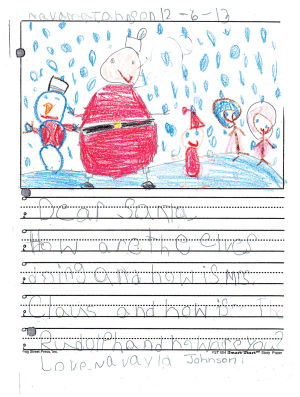 Johnson 12-6-13
Dear Santa
How are the elves
doing and how is Mrs.
Claus and how is
Rudolph and how are you?
Frog Street Press, Inc. FST 654 Smart Start™ Story Paper
Love, Navayla Johnson